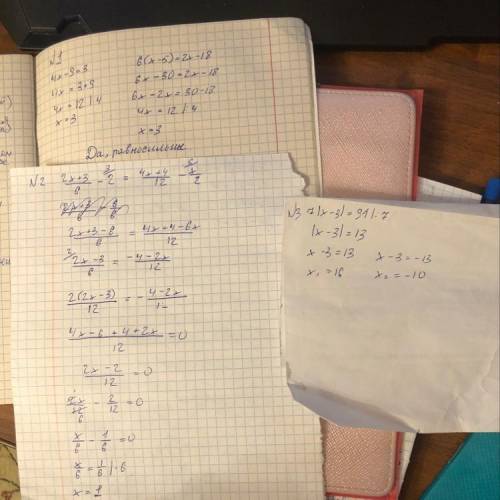 №1
4x-9=3
4x=3+9
4x=12/4
x=3
6(x-5)=2x-18
6x-30=2x-18
6x-2x=30-18
4x=12/4
x=3
Да, равносильны
№2 (2x+3)/6 - 2 = (4x+4)/12 - x/2
(2x+3-6)/6 = (4x-4-6x)/12
(2x-3)/6 = (-4-2x)/12
2(2x-3)/12 = -(4-2x)/12
(4x-6+4+2x)/12 = 0
(2x-2)/12 = 0
2x/12 - 2/12 = 0
x/6 - 1/6 = 0
x/6 = 1/6 |·6
x=1
№3 7|x-3|=91|:7
|x-3|=13
x-3=13 x-3=-13
x₁=16 x₂=-10